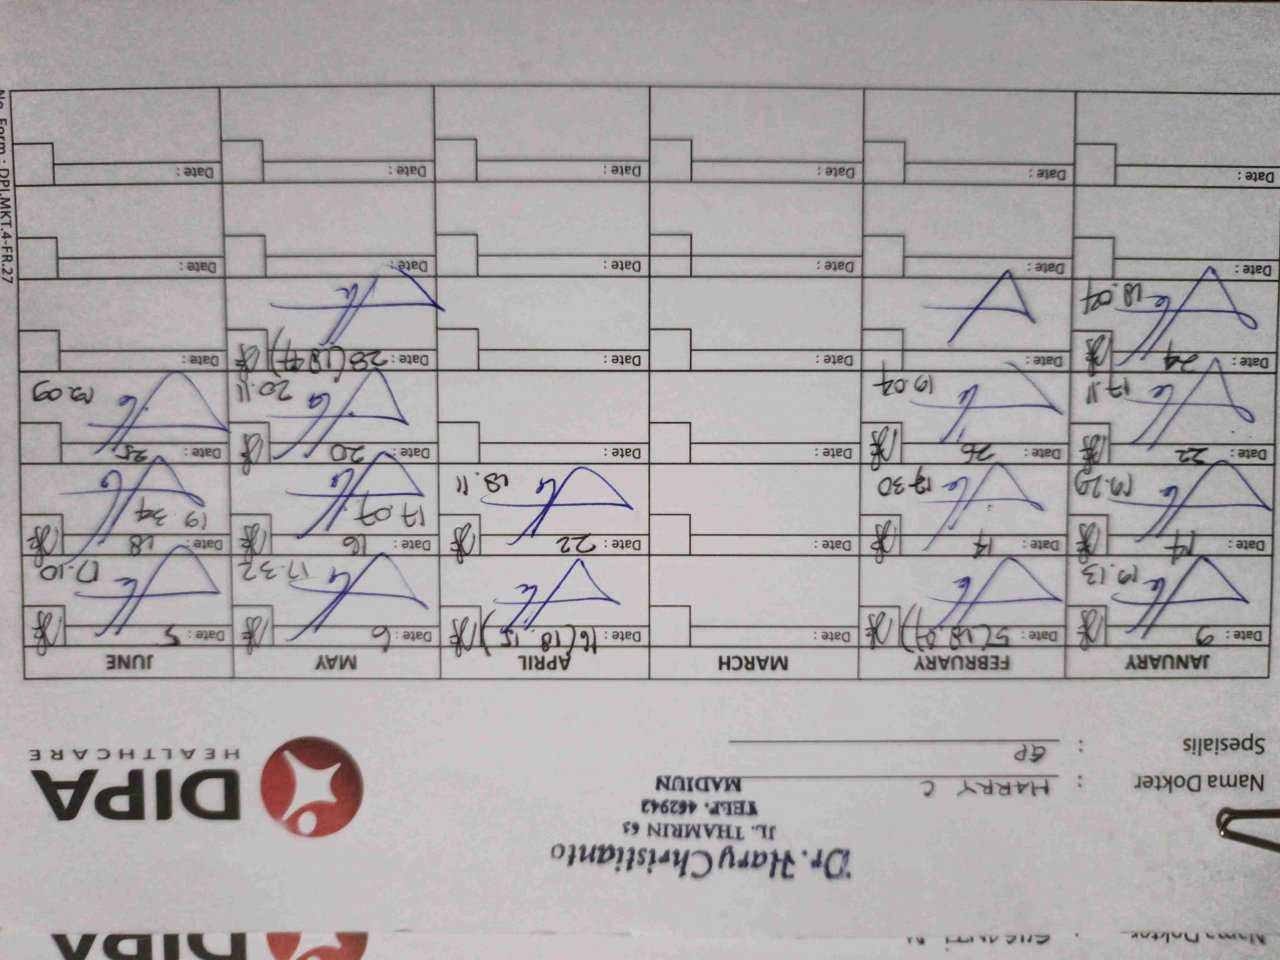 DIPA
HEALTHCARE
Dr. Hary Christianto
JL. THAMRIN 63
TELP. 462942
MADIUN
Nama Dokter : HARRY C
Spesialis : GP
JANUARY FEBRUARY MARCH APRIL MAY JUNE
Date : 9 Date : 5 (18.07) Date : Date : 16 (18.15) Date : 6 Date : 5
19.13 17.32 17.10
Date : 14 Date : 14 Date : Date : 22 Date : 16 Date : 18
19.29 17.30 18.11 17.07 19.34
Date : 22 Date : 26 Date : Date : Date : 20 Date : 25
17.11 19.07 20.11 19.09
Date : 24 Date : Date : Date : Date : 28 (18.47) Date :
18.07
Date : Date : Date : Date : Date : Date :
Date : Date : Date : Date : Date : Date :
No. Form : DPI.MKT.4-FR.27
Nama Dokter :
DIPA